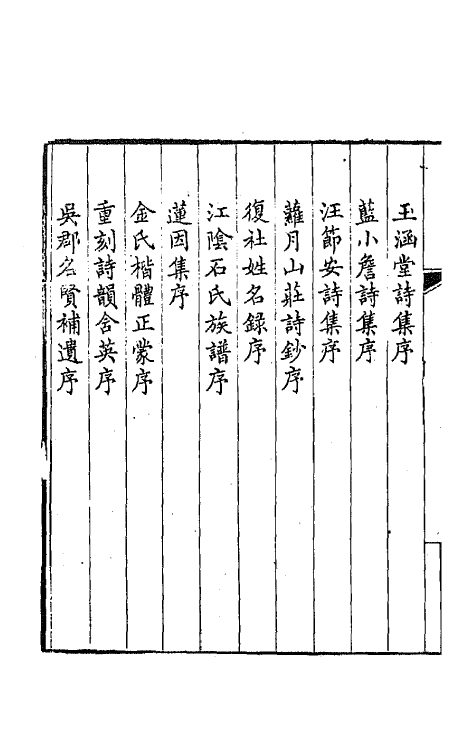 玉涵堂詩集序
藍小詹詩集序
汪節安詩集序
蘿月山莊詩鈔序
復社姓名錄序
江陰石氏族譜序
蓮因集序
金氏楷體正蒙序
重刻詩韻含英序
吳郡名賢補遺序